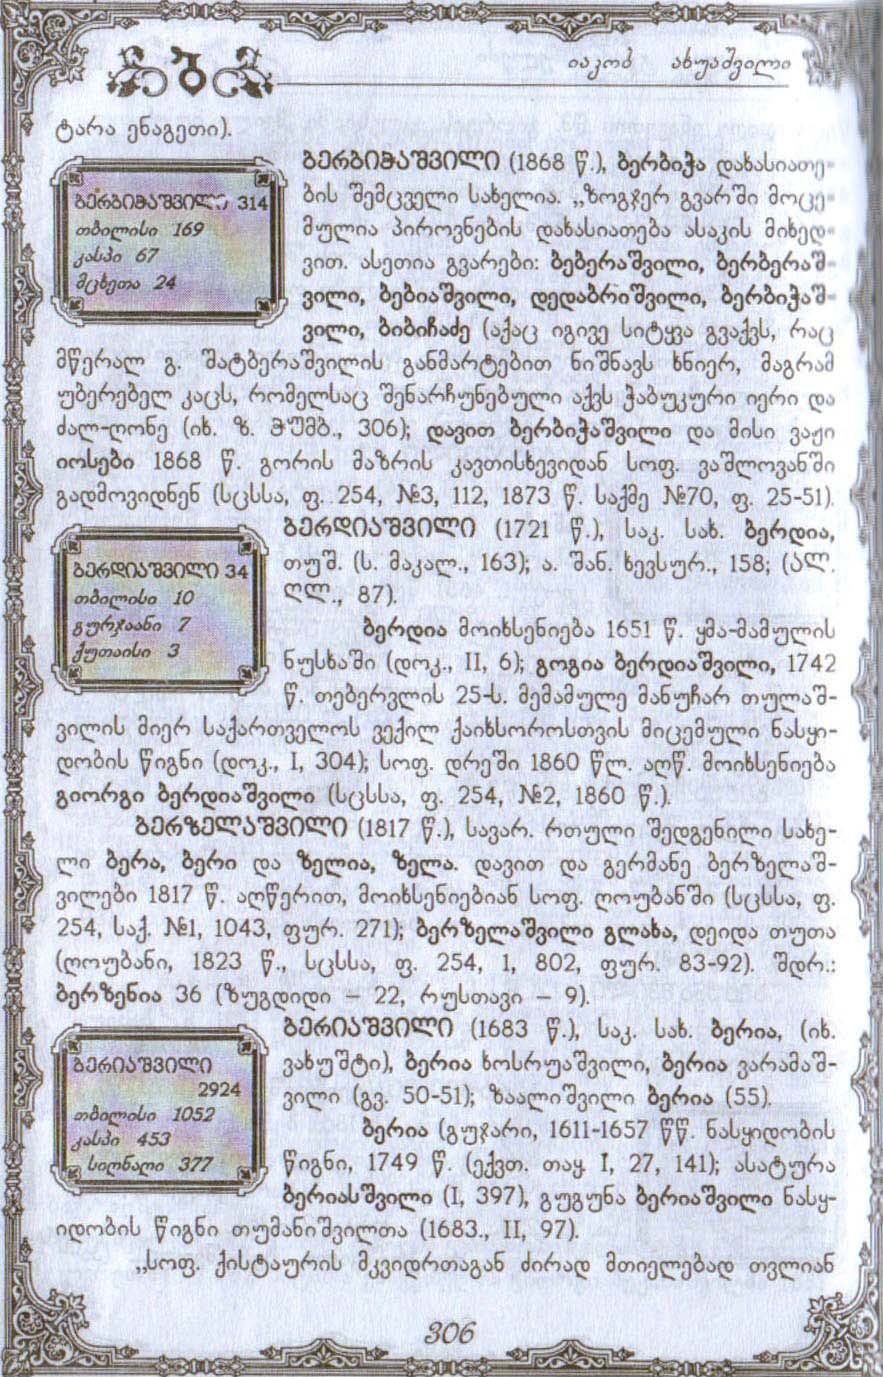 იაკობ ახუაშვილი
ტარა ენაგეთი).
ბერბიჭაშვილი (1868 წ.), ბერბიჭა დახასიათე-
ბის შემცველი სახელია. „ზოგჯერ გვარში მოცე-
მულია პიროვნების დახასიათება ასაკის მიხედ-
ვით. ასეთია გვარები: ბებერაშვილი, ბერბერაშ-
ვილი, ბებიაშვილი, დედაბრიშვილი, ბერბიჭაშ-
ვილი, ბიბიჩაძე (აქაც იგივე სიტყვა გვაქვს, რაც
მწერალ გ. შატბერაშვილის განმარტებით ნიშნავს ხნიერ, მაგრამ
უბერებელ კაცს, რომელსაც შენარჩუნებული აქვს ჭაბუკური იერი და
ძალ-ღონე (იხ. ზ. ჭუმბ., 306); დავით ბერბიჭაშვილი და მისი ვაჟი
იოსები 1868 წ. გორის მაზრის კავთისხევიდან სოფ. ვაშლოვანში
გადმოვიდნენ (სცსსა, ფ. 254, №3, 112, 1873 წ. საქმე №70, ფ. 25-51).
ბერბიჭაშვილი 314
თბილისი 169
კასპი 67
მცხეთა 24
ბერდიაშვილი (1721 წ.), საკ. სახ. ბერდია,
თუშ. (ს. მაკალ., 163); ა. შან. ხევსურ., 158; (ალ.
ღლ., 87).
ბერდია მოიხსენიება 1651 წ. ყმა-მამულის
ნუსხაში (დოკ., II, 6); გოგია ბერდიაშვილი, 1742
წ. თებერვლის 25-ს. მემამულე მანუჩარ თულაშ-
ვილის მიერ საქართველოს ვექილ ქაიხსოროსთვის მიცემული ნასყი-
დობის წიგნი (დოკ., I, 304); სოფ. დრეში 1860 წლ. აღწ. მოიხსენიება
გიორგი ბერდიაშვილი (სცსსა, ფ. 254, №2, 1860 წ.).
ბერდიაშვილი 34
თბილისი 10
გურჯაანი 7
ქუთაისი 3
ბერზელაშვილი (1817 წ.), სავარ. რთული შედგენილი სახე-
ლი ბერა, ბერი და ზელია, ზელა. დავით და გერმანე ბერზელაშ-
ვილები 1817 წ. აღწერით, მოიხსენიებიან სოფ. ღოუბანში (სცსსა, ფ.
254, საქ. №1, 1043, ფურ. 271); ბერზელაშვილი გლახა, დეიდა თუთა
(ღოუბანი, 1823 წ., სცსსა, ფ. 254, 1, 802, ფურ. 83-92). შდრ.:
ბერზენია 36 (ზუგდიდი – 22, რუსთავი – 9).
ბერიაშვილი (1683 წ.), საკ. სახ. ბერია, (იხ.
ვახუშტი), ბერია ხოსრუაშვილი, ბერია ვარამაშ-
ვილი (გვ. 50-51); ზაალიშვილი ბერია (55).
ბერია (გუჯარი, 1611-1657 წწ. ნასყიდობის
წიგნი, 1749 წ. (ექვთ. თაყ. I, 27, 141); ასატურა
ბერიასშვილი (I, 397), გუგუნა ბერიაშვილი ნასყ-
იდობის წიგნი თუმანიშვილთა (1683., II, 97).
ბერიაშვილი
2924
თბილისი 1052
კასპი 453
სიღნაღი 377
„სოფ. ქისტაურის მკვიდრთაგან ძირად მთიელებად თვლიან
306